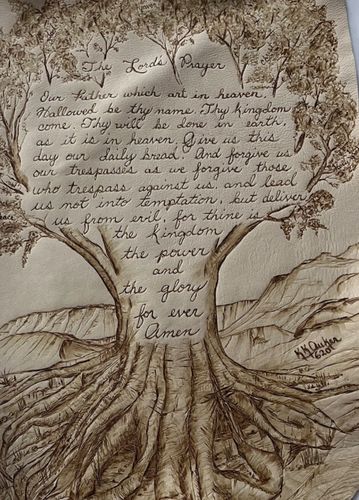 The Lord's Prayer
Our Father which art in heaven,
Hallowed be thy name. Thy kingdom
come. Thy will be done in earth,
as it is in heaven. Give us this
day our daily bread. And forgive us
our trespasses as we forgive those
who trespass against us. and lead
us not into temptation, but deliver
us from evil, for thine is
the kingdom
the power
and
the glory
for ever
Amen